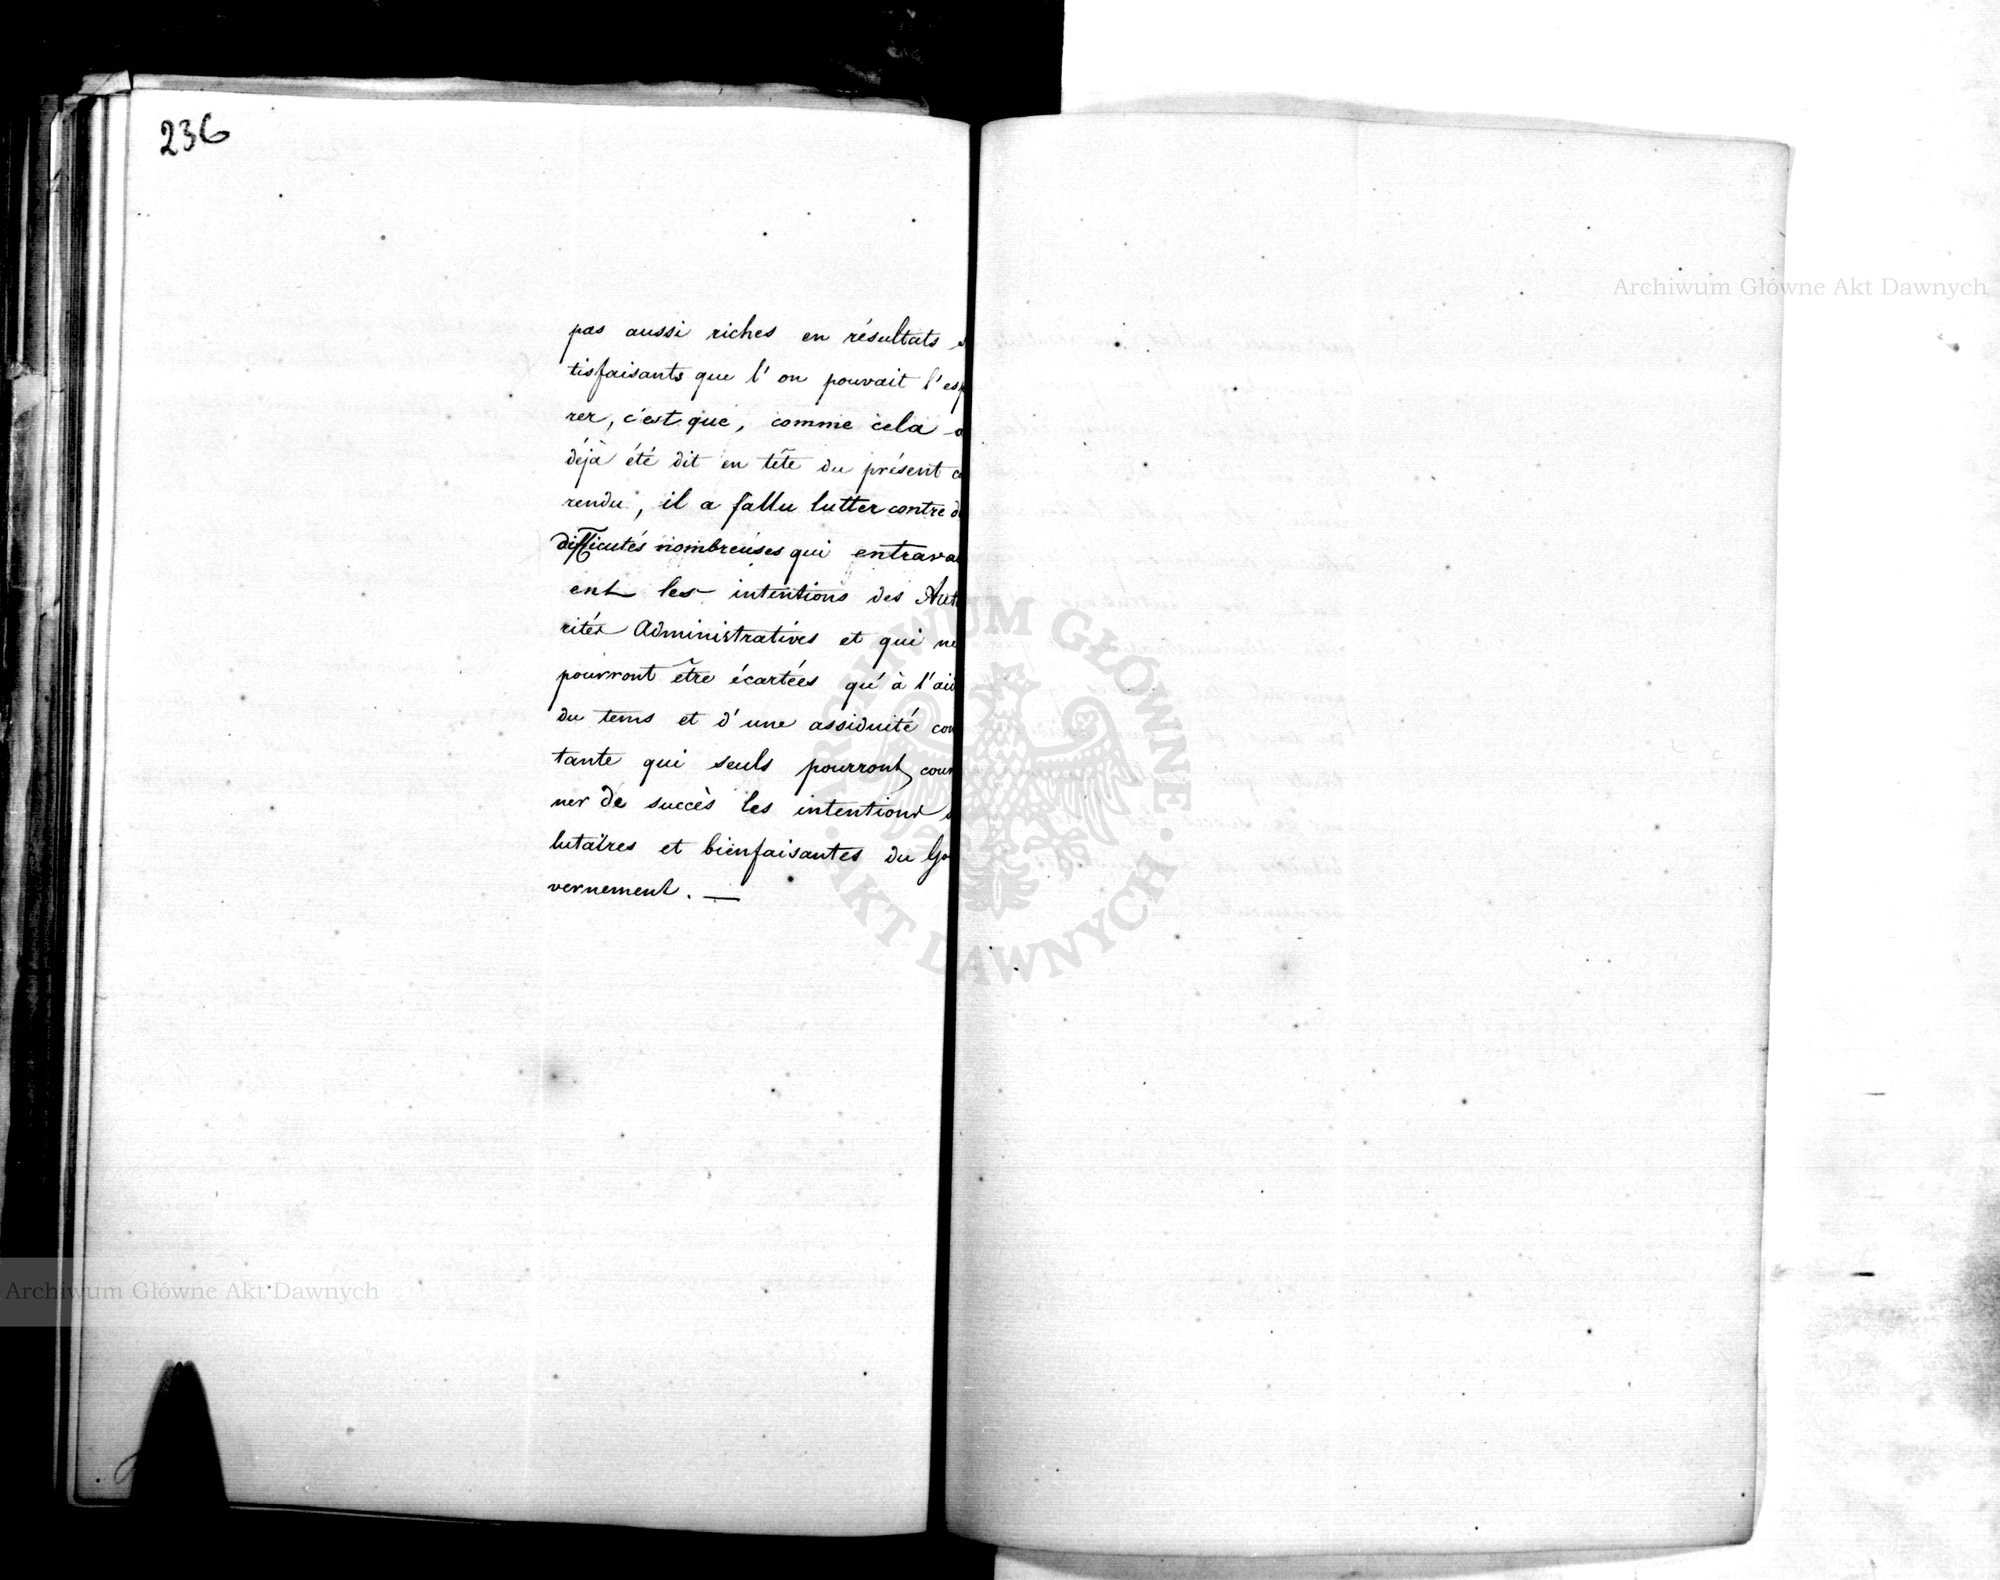 236
pas aussi riches en résultats s
tisfaisants que l'on pouvait l'esp
rer, c'est que, comme cela a
déjà été dit en tête du présent c
rendu, il a fallu lutter contre d
difficutés nombreuses qui entrava
ent les intentions des Auto
rités Administratives et qui ne
pourront être écartées qu'à l'aid
du tems et d'une assiduité con
tante qui seuls pourront cour
ner de succès les intentions s
lutaires et bienfaisantes du Go
vernement. —
Archiwum Główne Akt Dawnych
ARCHIWUM GŁÓWNE · AKT DAWNYCH ·
Archiwum Główne Akt Dawnych